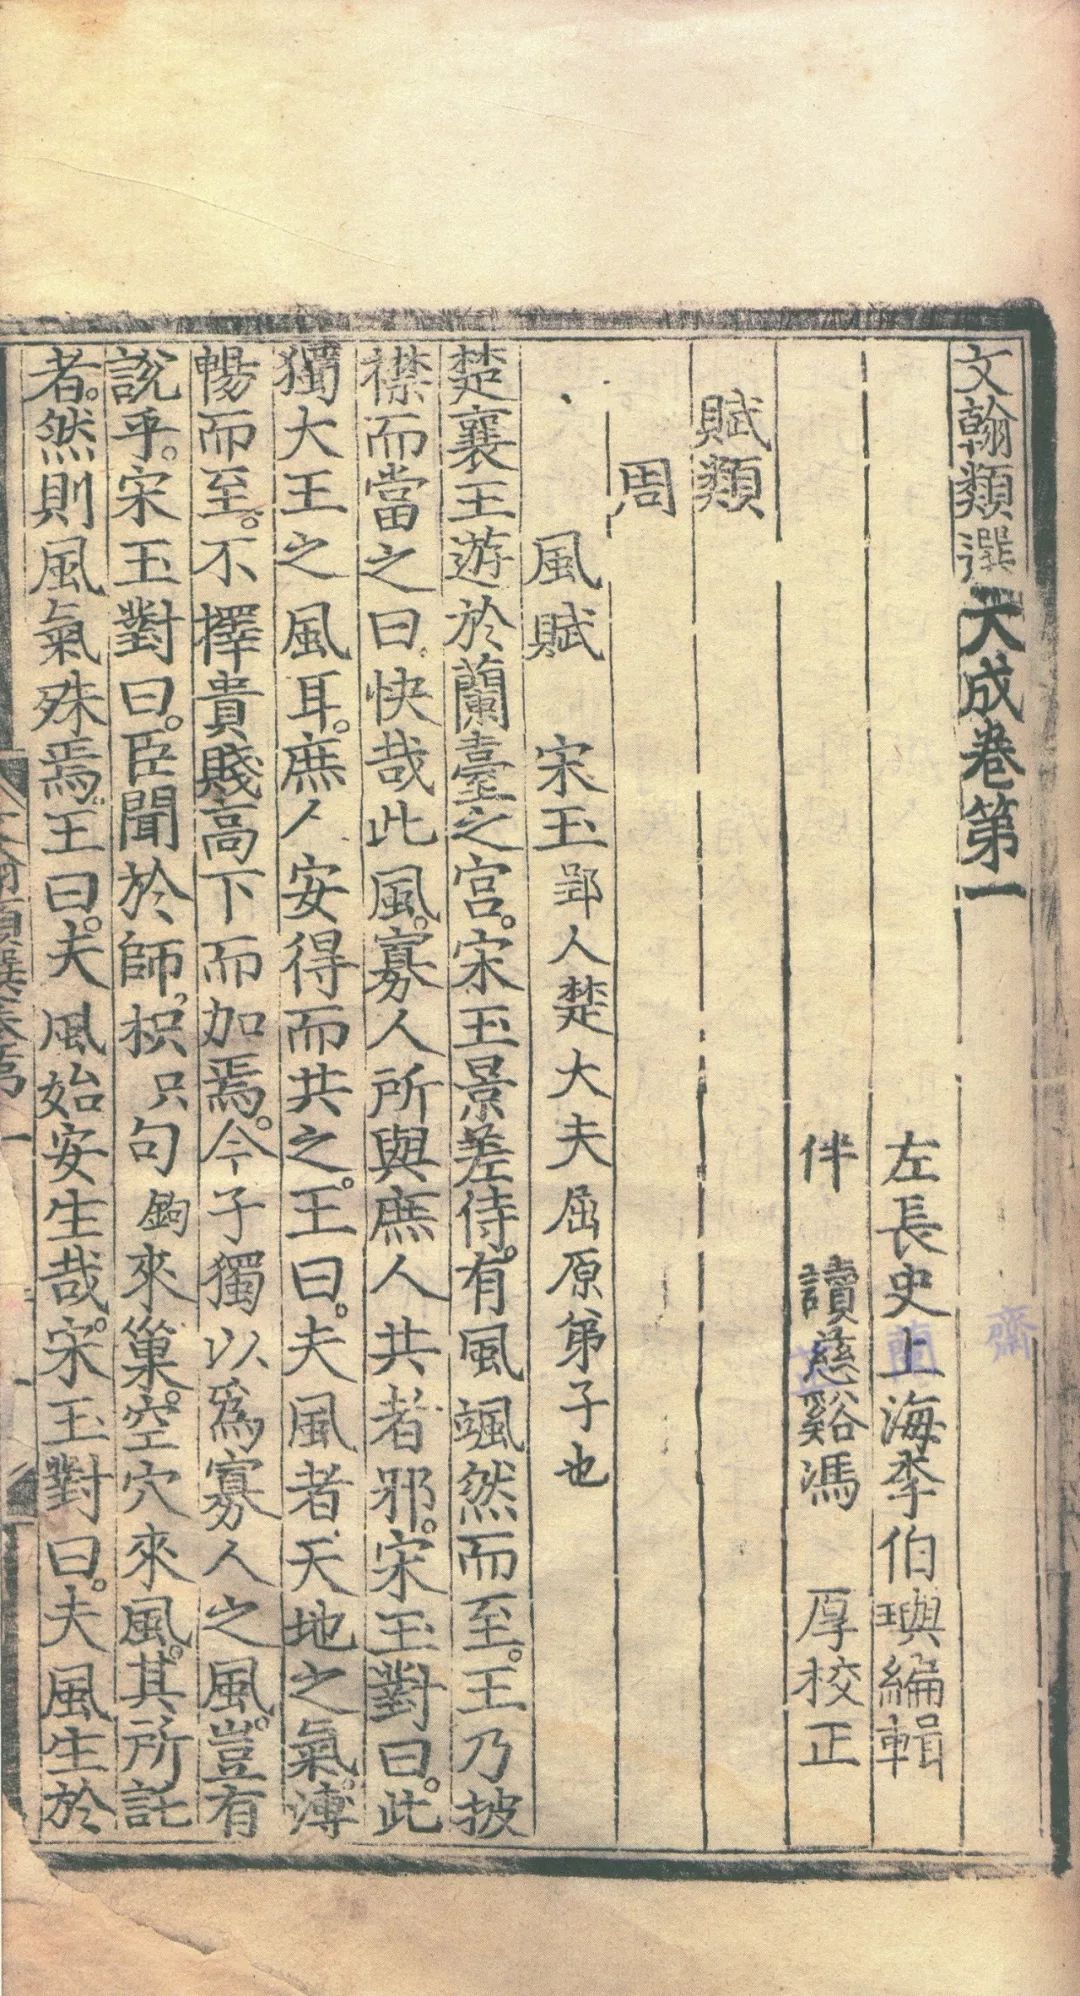 文翰類選大成卷第一
左長史上海李伯璵編輯
伴讀慈谿馮厚校正
賦類
周
風賦 宋玉郢人楚大夫屈原弟子也
楚襄王遊於蘭臺之宫。宋玉景差侍。有風颯然而至。王乃披
襟而當之曰。快哉此風。寡人所與庶人共者邪。宋玉對曰。此
獨大王之風耳。庶人安得而共之。王曰。夫風者天地之氣。溥
暢而至。不擇貴賤高下而加焉。今子獨以爲寡人之風。豈有
說乎。宋玉對曰。臣聞於師。枳只句鉤來巢。空穴來風。其所託
者。然則風氣殊焉。王曰。夫風始安生哉。宋玉對曰。夫風生於
文翰類選卷第一
齋
蘭